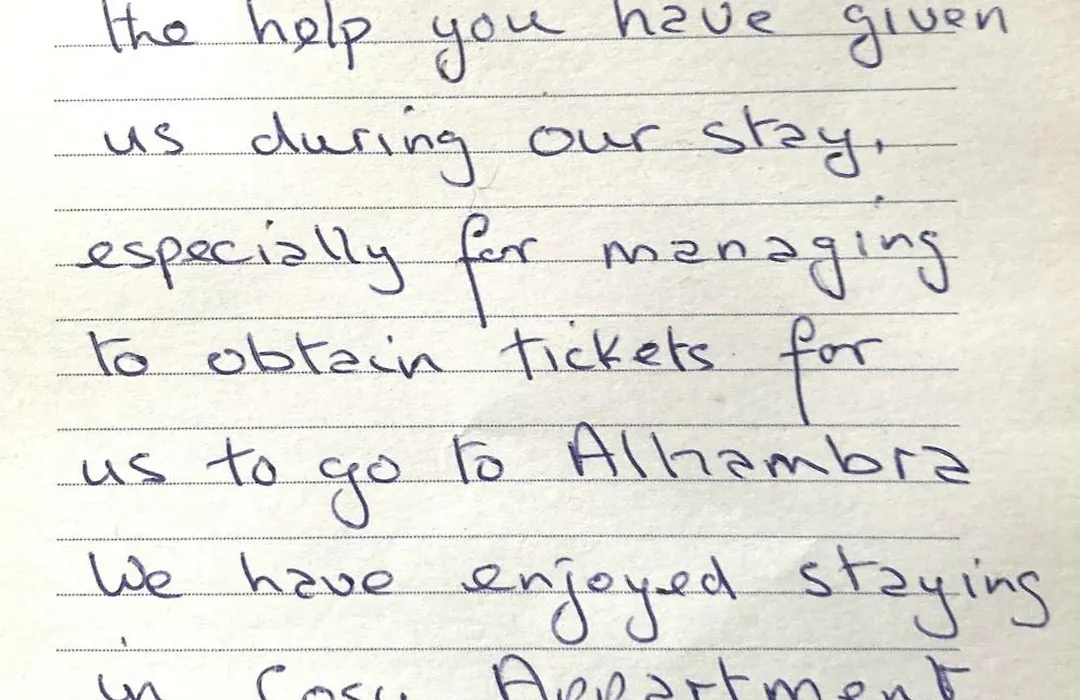 the help you have given
us during our stay,
especially for managing
to obtain tickets for
us to go to Alhambra
We have enjoyed staying
in Cosy Appartment